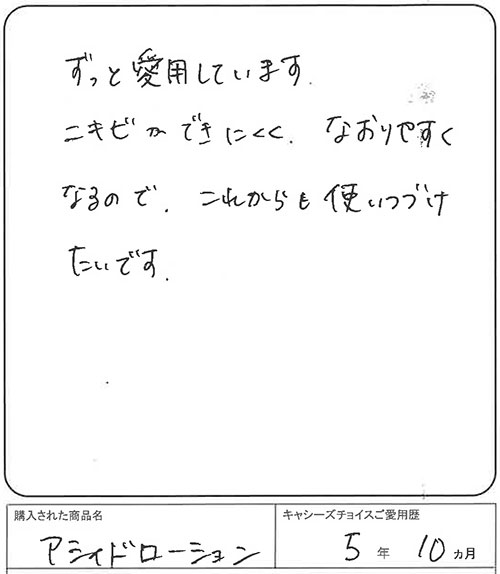 ずっと愛用しています.
ニキビができにくく.なおりやすく
なるので.これからも使いつづけ
たいです.
購入された商品名
アシィドローション
キャシーズチョイスご愛用歴
5年10ヵ月